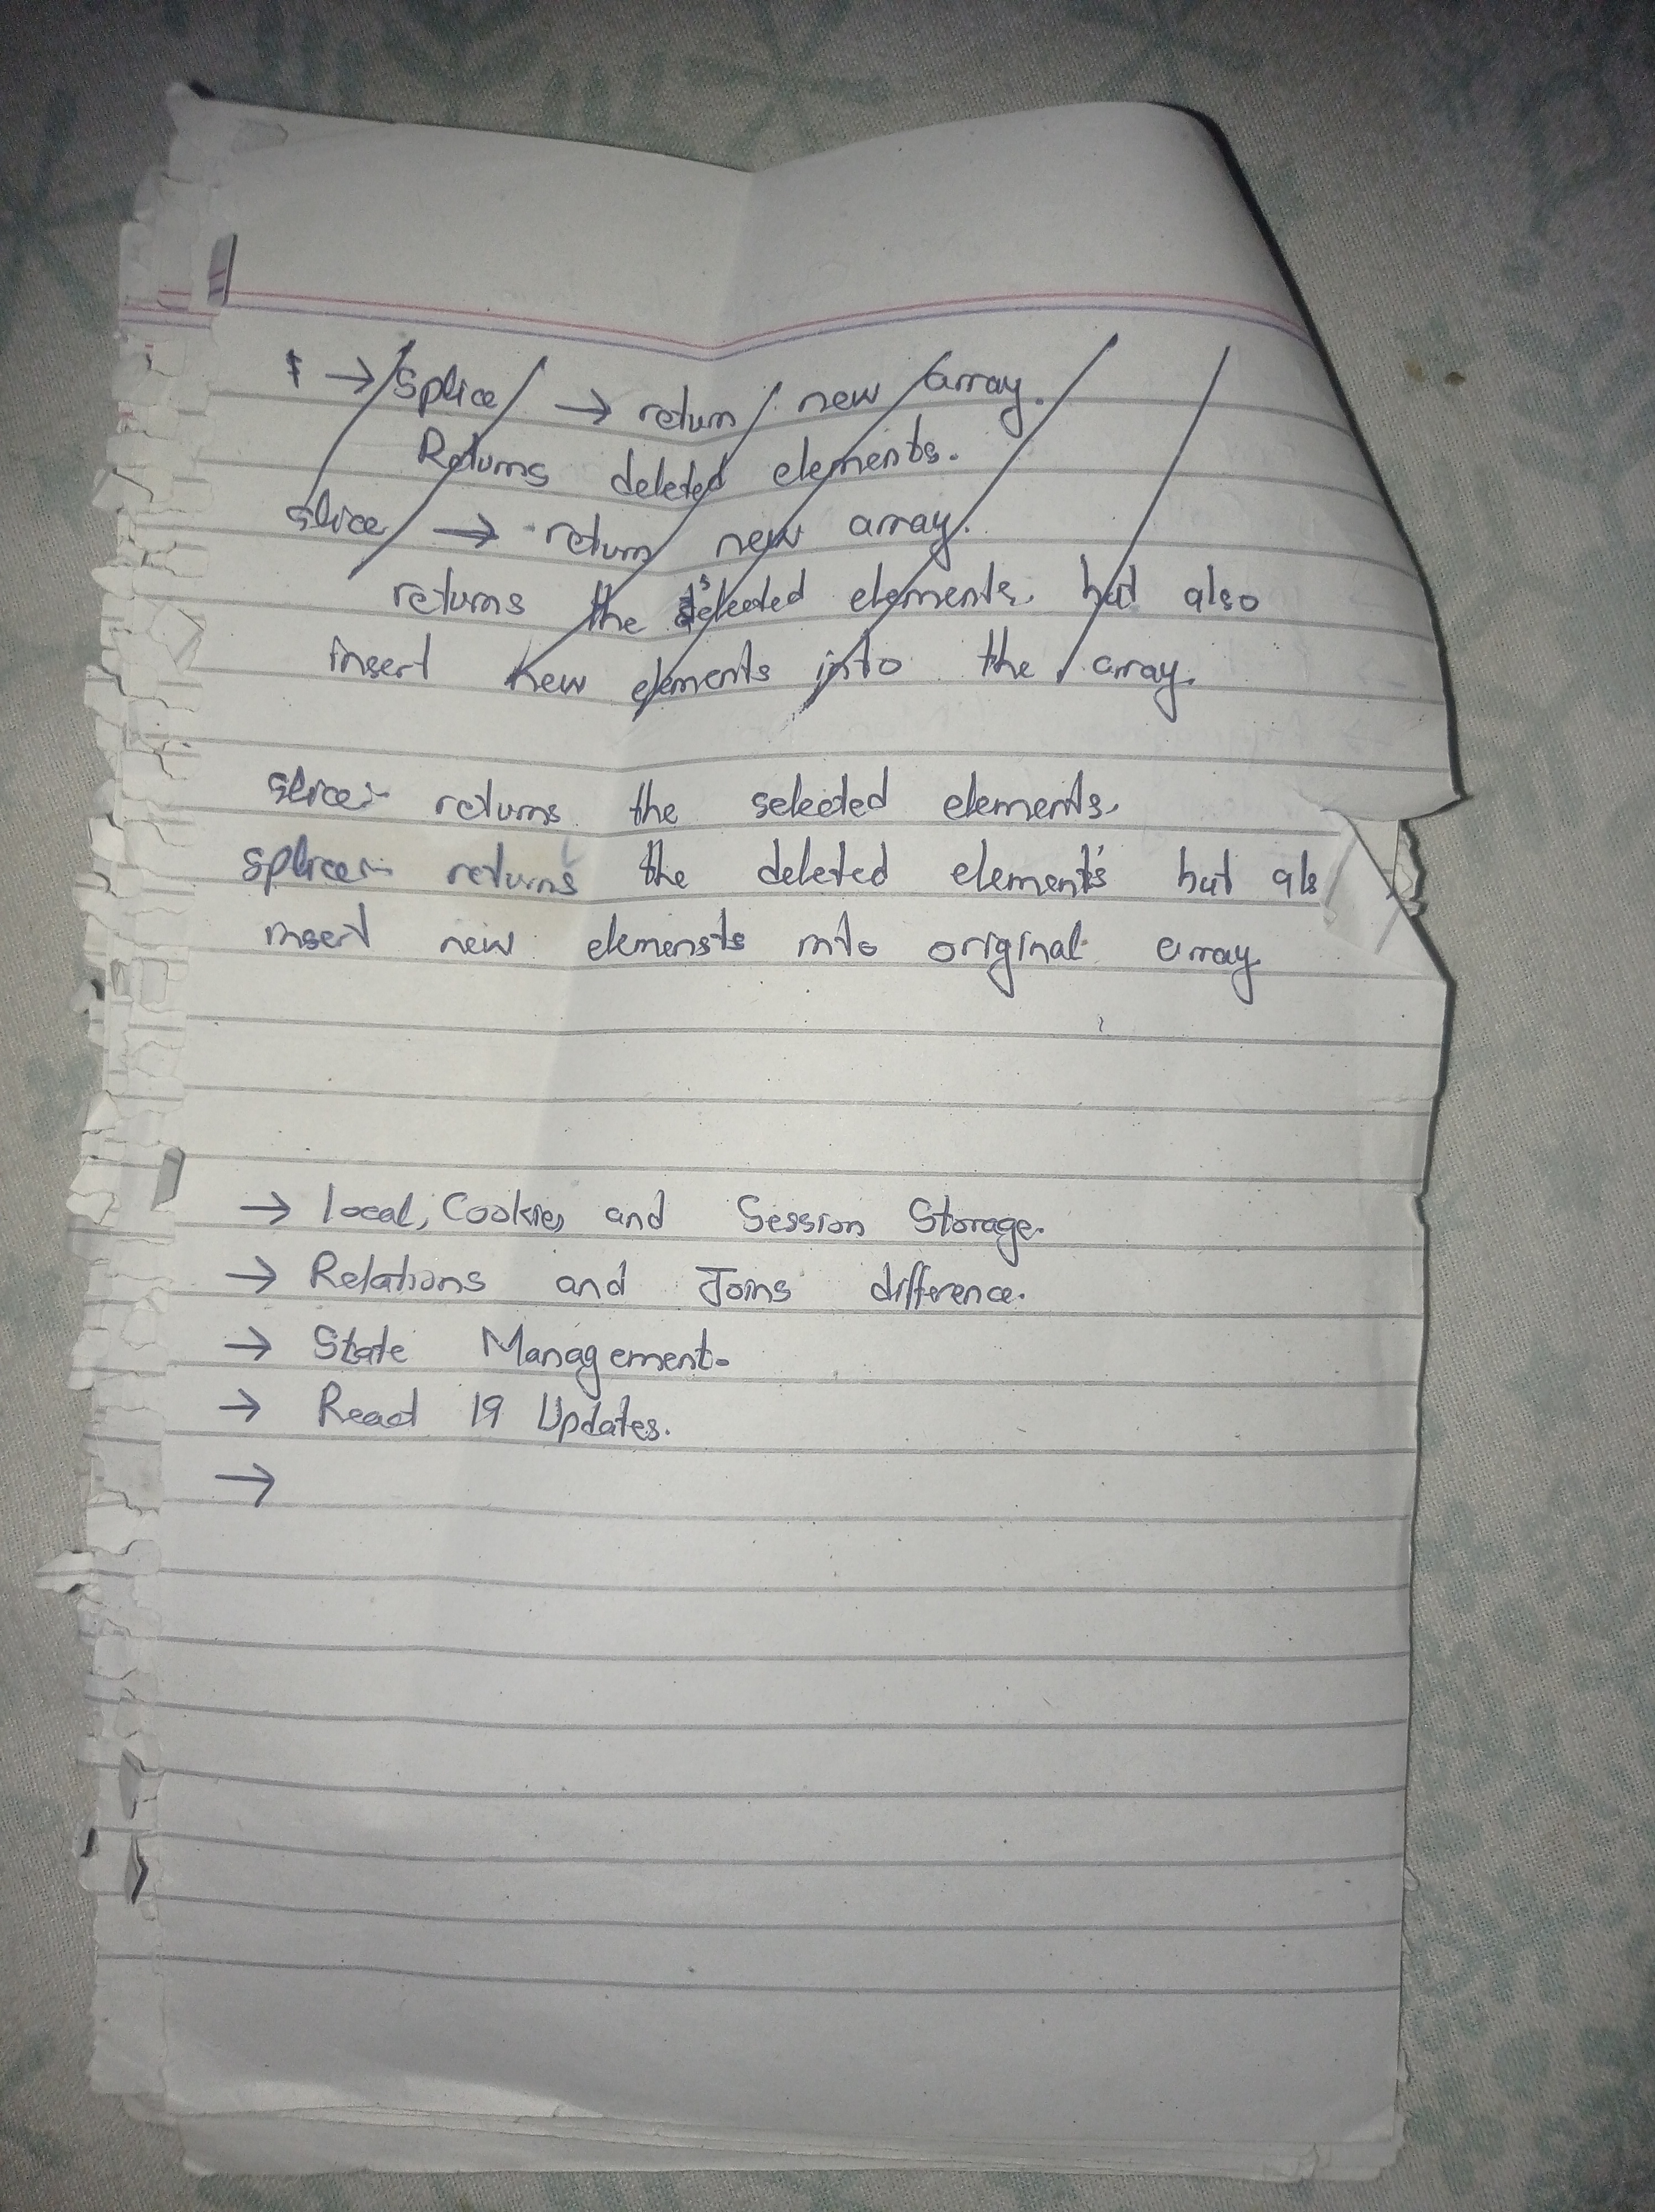 → Splice → return new array.
Returns deleted elements.
slice → return new array.
returns the selected elements, but also
insert new elements into the array.
slice:- returns the selected elements.
splice:- returns the deleted element's but als
insert new elemensts into original array.
→ Local, Cookies, and Session Storage.
→ Relations and Joins difference.
→ State Management.
→ Read 19 Updates.
→